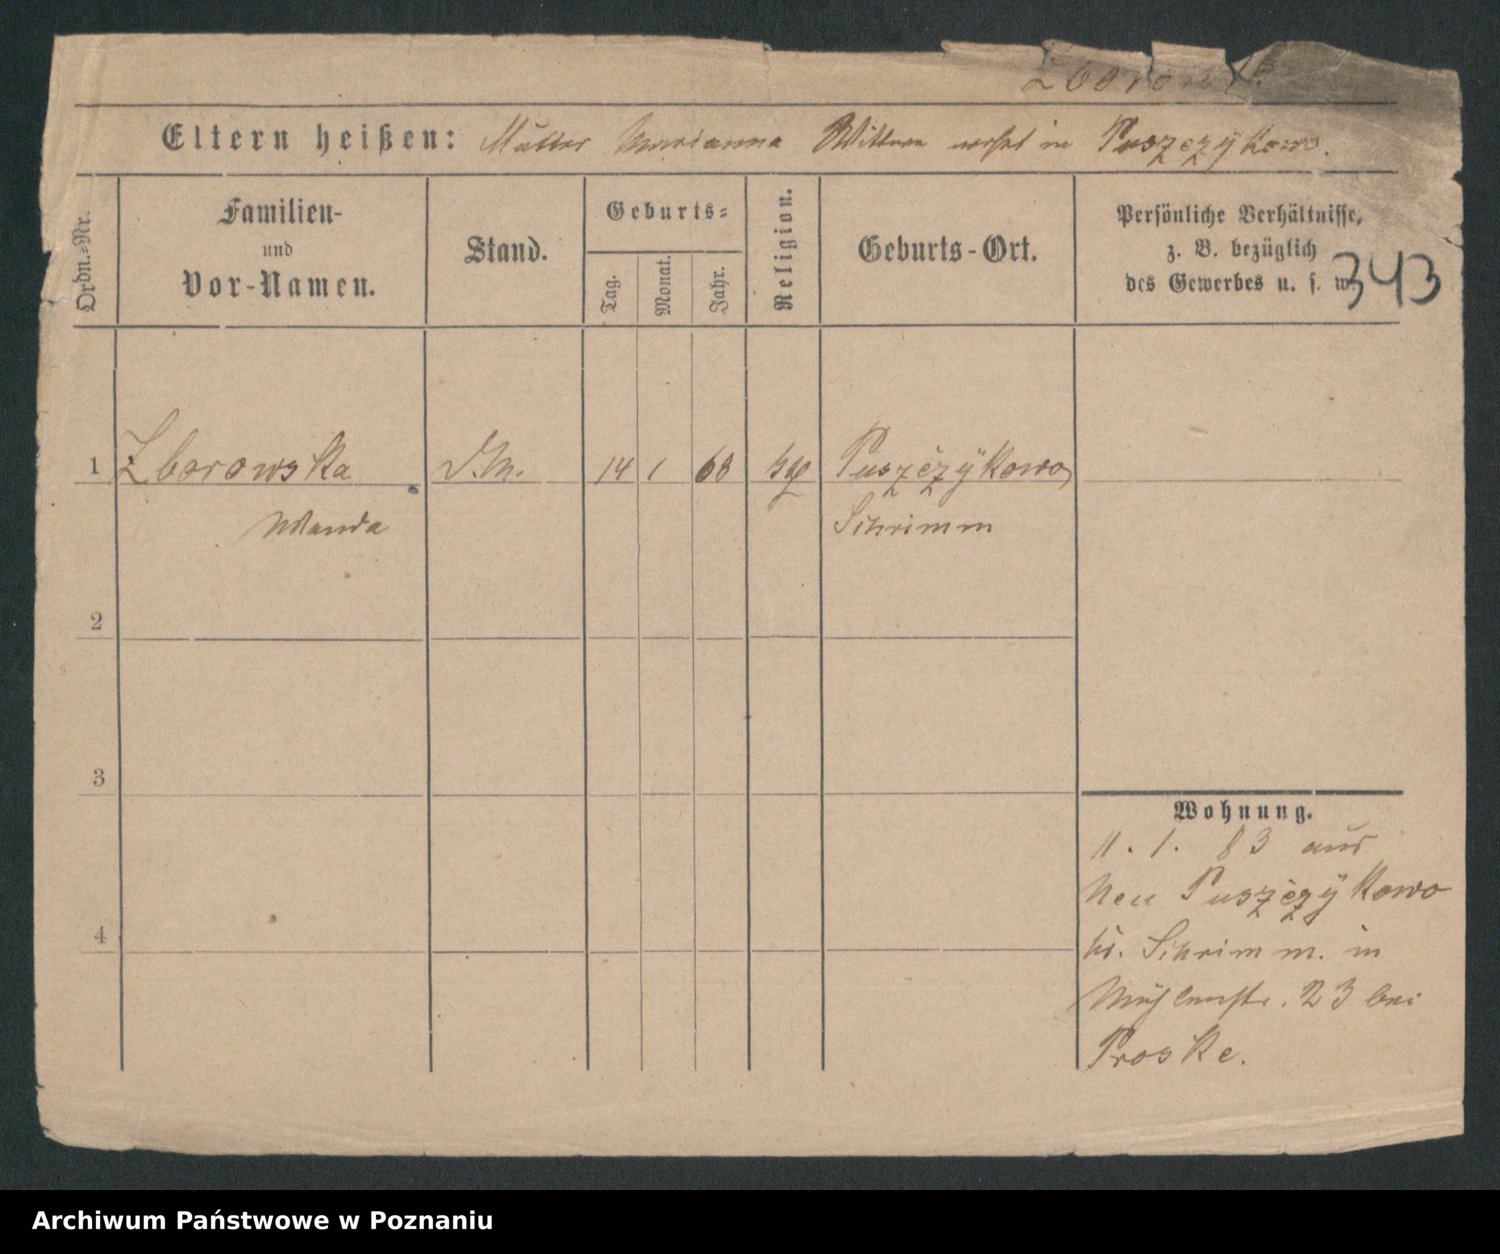 Eltern heißen: Mutter Marianna Wittwe wohnt in Puszczykowo.
Ordn.-Nr.
Familien-
und
Vor-Namen.
Stand.
Geburts-
Tag.
Monat.
Jahr.
Religion.
Geburts-Ort.
Persönliche Verhältnisse,
z. B. bezüglich
des Gewerbes u. s. w.
343
1 Zborowska D.M. 14 1 68 Puszczykowo
Wanda Schrimm
2
3
4
Wohnung.
11. 1. 83 aus
Neu Puszczykowo
Kr. Schrimm. in
Mühlenstr. 23 bei
Proske.
Archiwum Państwowe w Poznaniu